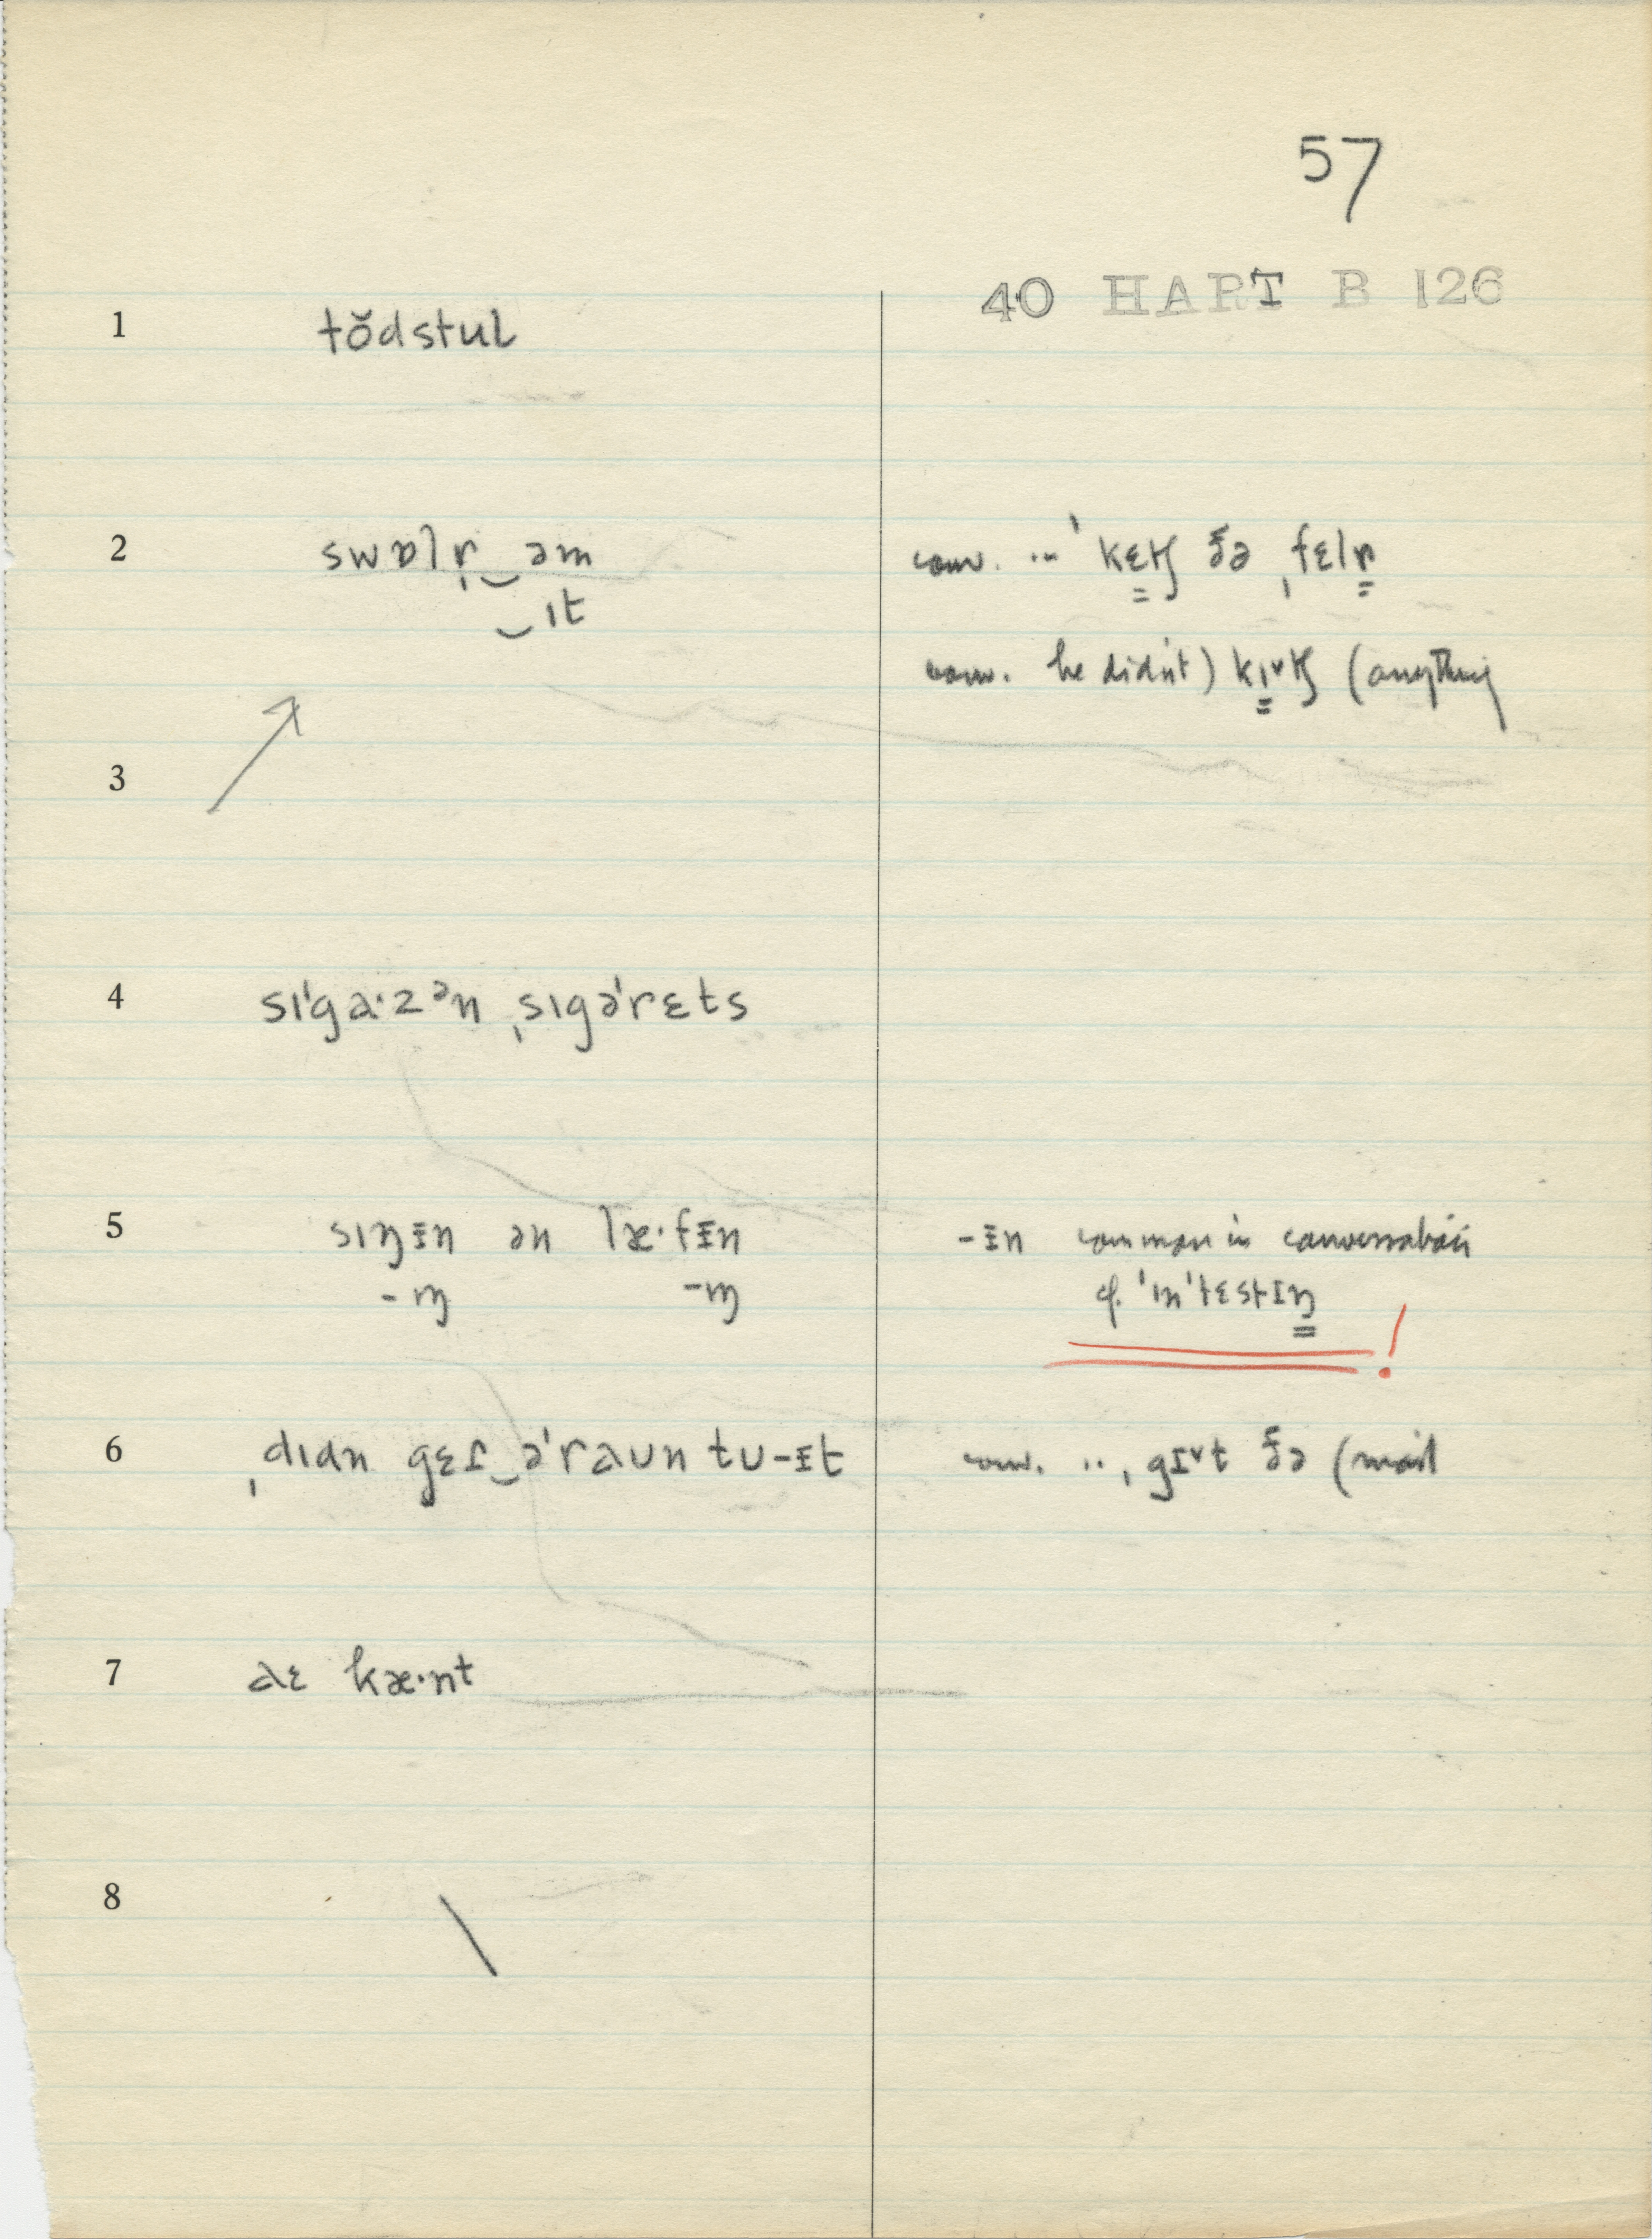 57
40 HART B 126
1 tŏdstul
2 swɒlɚ̩‿əm conv. ... ˈkɛʧ ðə ˌfɛlɚ
‿ɪt
conv. he didn't) kɪ˅ʧ (anything
3
4 sɪˈgɑ·zᵊn ˌsɪgəˈrɛts
5 sɪŋɪ̵n ən læ·fɪ̵n -ɪ̵n common in conversation
-ɪŋ -ɪŋ cf. ˈɪnˈtɛstɪŋ !
6 ˌdɪdn gɛɾ‿əˈraʊn tʊ-ɪ̵t conv. .. , gɪ˅t ðə (mail
7 aɛ kæ·nt
8 \